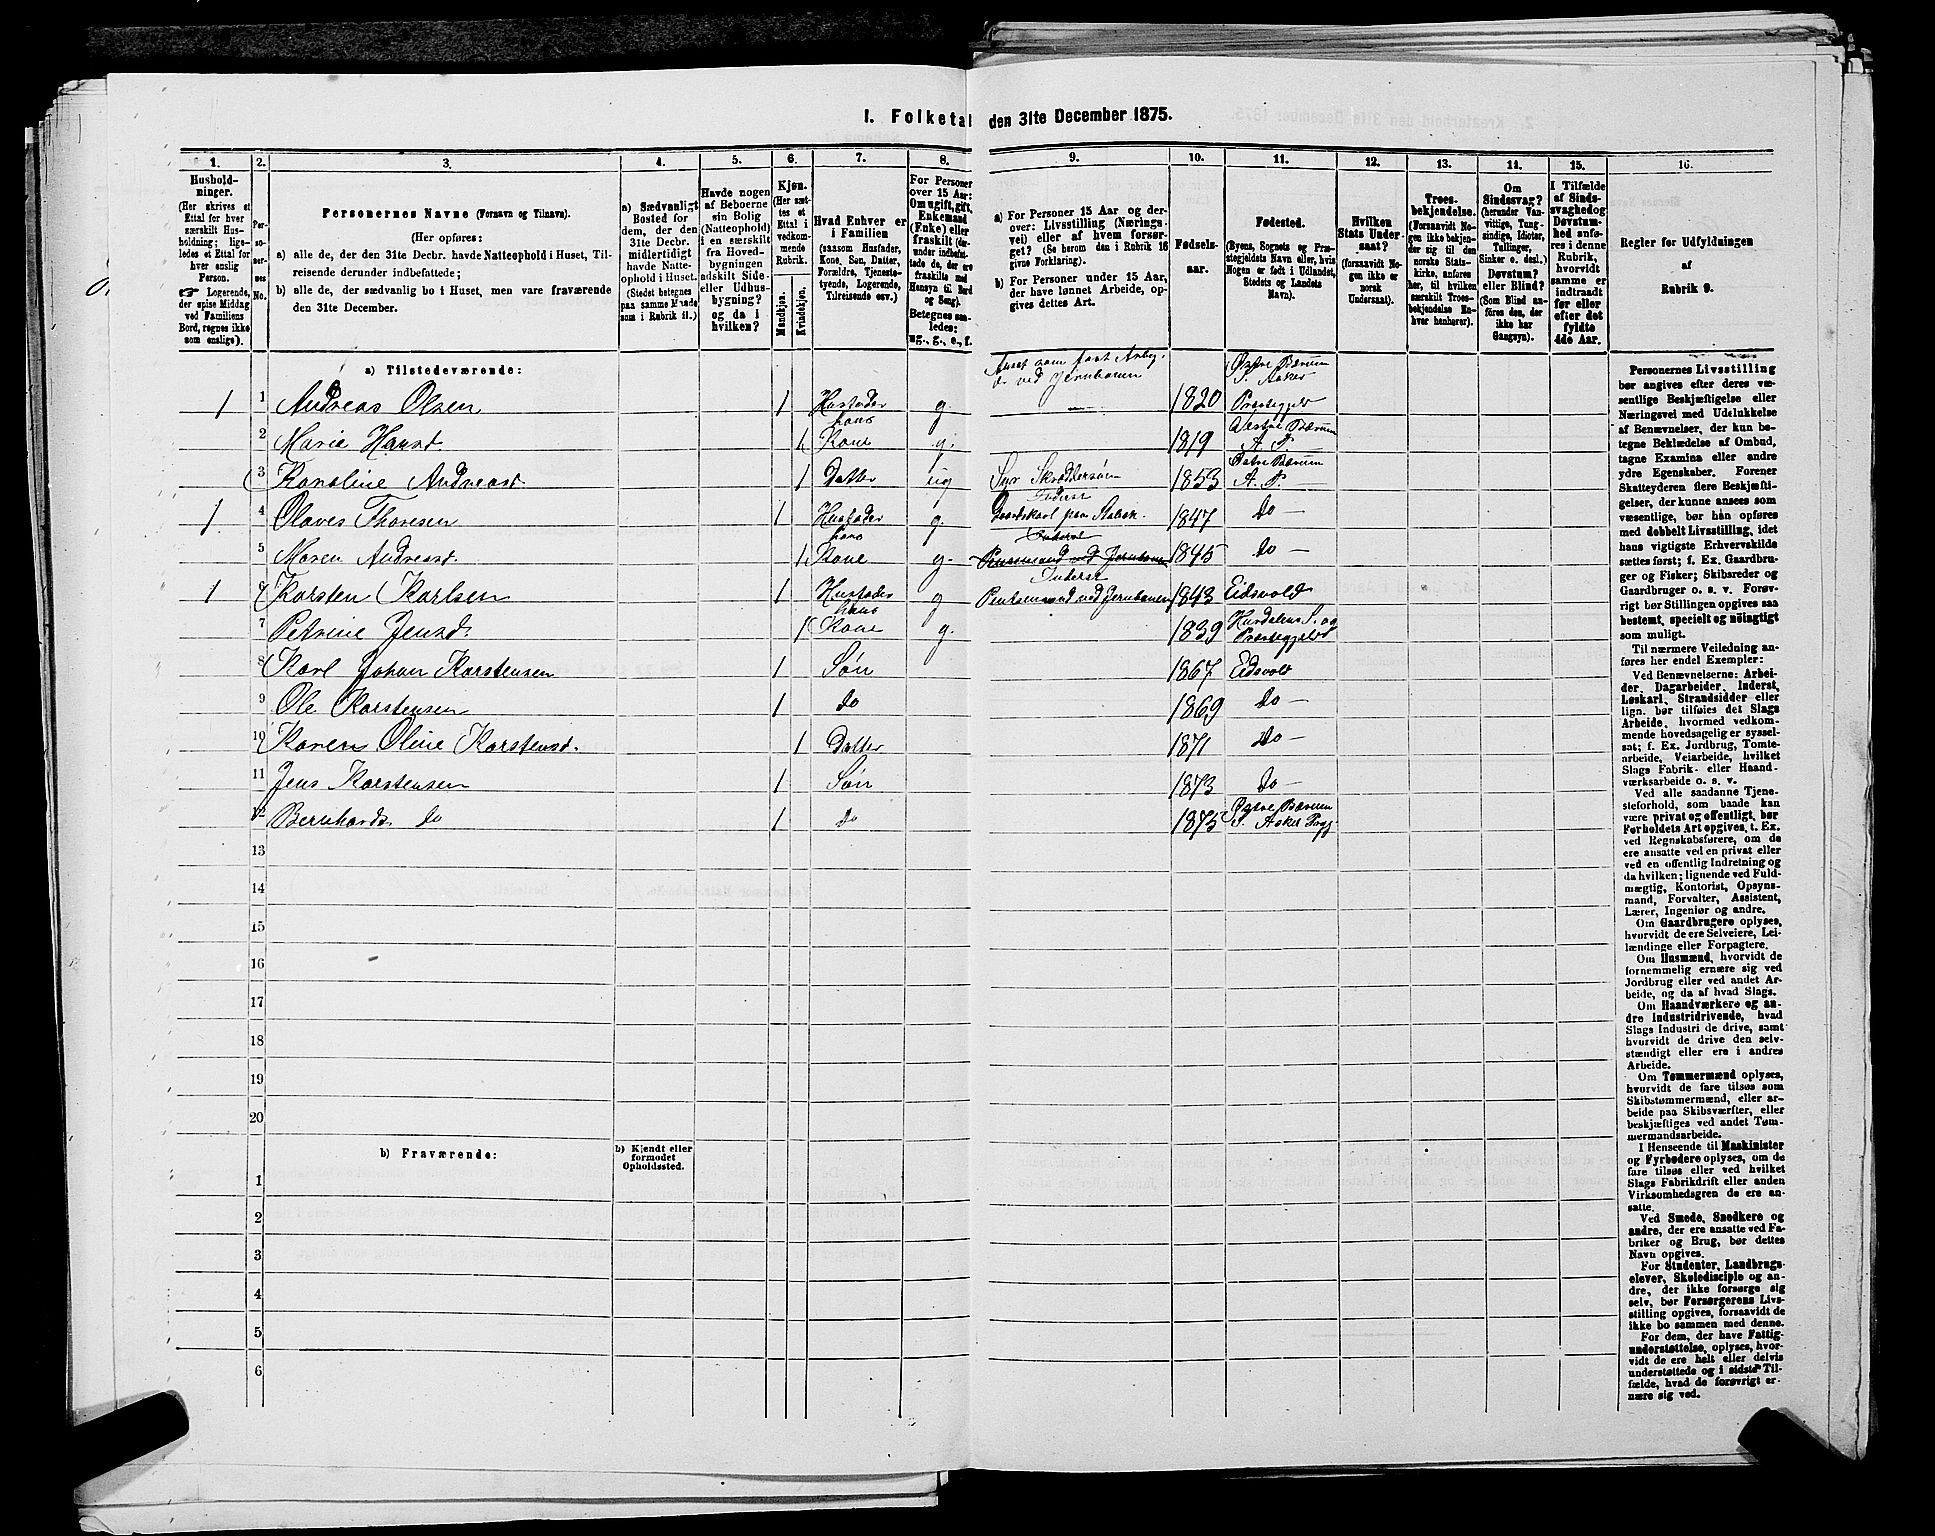 1. Folketal den 31te December 1875.
1. 2. 3. 4. 5. 6. 7. 8. 9. 10. 11. 12. 13. 14. 15. 16.
Hushold-
ninger.
(Her skrives et
Ettal for hver
særskilt Hus-
holdning; lige-
ledes et Ettal for
hver enslig
Person.
☞ Logerende,
der spise Middag
ved Familiens
Bord, regnes ikke
som enslige).
Per-
so-
ner-
nes
No.
Personernes Navne (Fornavn og Tilnavn).
(Her opføres:
a) alle de, der den 31te Decbr. havde Natteophold i Huset, Til-
reisende derunder indbefattede;
b) alle de, der sædvanlig bo i Huset, men vare fraværende
den 31te December.
a) Sædvanligt
Bosted for
dem, der den
31te Decbr.
midlertidigt
havde Natte-
ophold i Huset.
(Stedet betegnes
paa samme Maade
som i Rubrik 11.)
Havde nogen
af Beboerne
sin Bolig
(Natteophold)
i en særskilt
fra Hoved-
bygningen
adskilt Side-
eller Udhus-
bygning?
og da i
hvilken?
Kjøn.
(Her sæt-
tes et
Ettal i
vedkom-
mende
Rubrik.
Mandkjøn.
Kvindekjøn.
Hvad Enhver er
i Familien
(saasom Husfader,
Kone, Søn, Datter,
Forældre, Tjeneste-
tyende, Logerende,
Tilreisende osv.)
For Personer
over 15 Aar:
Om ugift, gift,
Enkemand
(Enke) eller
fraskilt (der-
under indbefat-
tede de, der ere
fraskilte med
Hensyn til Bord
og Seng).
Betegnes saa-
ledes:
ug., g., e., f.
a) For Personer 15 Aar og der-
over: Livsstilling (Nærings-
vei) eller af hvem forsør-
get? (Se herom den i Rubrik 16
givne Forklaring).
b) For Personer under 15 Aar,
der have lønnet Arbeide, op-
gives dettes Art.
Fødsels-
aar.
Fødested.
(Byens, Sognets og Præ-
stegjeldets Navn eller, hvis
Nogen er født i Udlandet,
Stedets og Landets
Navn).
Hvilken
Stats Under-
saat?
(forsaavidt No-
gen ikke er
norsk
Undersaat).
Troes-
bekjendelse.
(Forsaavidt No-
gen ikke bekjen-
der sig til den
norske Stats-
kirke, anføres
her, til hvilken
særskilt Troes-
bekjendelse En-
hver henhører).
Om
Sindssvag?
(herunder Van-
vittige, Tung-
sindige, Idioter,
Tullinger,
Sinker o. desl.).
Døvstum?
eller Blind?
(Som Blind an-
føres den, der
ikke har
Gangsyn).
I Tilfælde
af Sinds-
svaghed og
Døvstum-
hed anfø-
res i denne
Rubrik,
hvorvidt
samme er
indtraadt
før eller
efter det
fyldte
4de Aar.
Regler for Udfyldningen
af
Rubrik 9.
a) Tilstedeværende:
1 1 Andreas Olsen 1 Husfader g. 1820 Østre Bærum S. Asker Præstegjeld
2 Marie Hansd. 1 hans Kone g. 1819 Vestre Bærum A. P.
3 Karoline Andreasd. 1 Datter ug 1853 Østre Bærum A. P.
1 4 Olaves Thoresen 1 Husfader g. Inderst Gaardskarl paa Stabæk 1847 do
5 Maren Andreasd. 1 hans Kone g. 1845 do
1 6 Karsten Karlsen 1 Husfader g Inderst Pudsemand ved Jernbanen 1843 Eidsvold
7 Petrine Jensd. 1 hans Kone g. 1839 Hurdalens S. og Præstegjeld
8 Karl Johan Karstensen 1 Søn 1867 Eidsvold
9 Ole Karstensen 1 do 1869 do
10 Karen Oline Karstensd. 1 Datter 1871 do
11 Jens Karstensen 1 Søn 1873 do
12 Bernhard do 1 do 1875 Østre Bærum S. Asker Pgj
13
14
15
16
17
18
19
20
b) Fraværende:
b) Kjendt eller
formodet
Opholdssted.
1
2
3
4
5
6
Personernes Livsstilling
bør angives efter deres væ-
sentlige Beskjæftigelse eller
Næringsvei med Udelukkelse
af Benævnelser, der kun be-
tegne Beklædelse af Ombud,
tagne Examina eller andre
ydre Egenskaber. Forener
Skatteyderen flere Beskjæfti-
gelser, der kunne ansees som
væsentlige, bør han opføres
med dobbelt Livsstilling, idet
hans vigtigste Erhvervskilde
sættes først; f. Ex. Gaardbru-
ger og Fisker; Skibsreder og
Gaardbruger o. s. v. Forøv-
rigt bør Stillingen opgives saa
bestemt, specielt og nøiagtigt
som muligt.
Til nærmere Veiledning an-
føres her endel Exempler:
Ved Benævnelserne: Arbei-
der, Dagarbeider, Inderst,
Løskarl, Strandsidder eller
lign. bør tilføies det Slags
Arbeide, hvormed vedkom-
mende hovedsagelig er syssel-
sat; f. Ex. Jordbrug, Tomte-
arbeide, Veiarbeide, hvilket
Slags Fabrik- eller Haand-
værksarbeide o. s. v.
Ved alle saadanne Tjene-
steforhold, som baade kan
være privat og offentligt, bør
Forholdets Art opgives, t. Ex.
ved Regnskabsførere, om de
ere ansatte ved en privat eller
ved en offentlig Indretning og
da hvilken; lignende ved Fuld-
mægtig, Kontorist, Opsyns-
mand, Forvalter, Assistent,
Lærer, Ingeniør og andre.
Om Gaardbrugere oplyses,
hvorvidt de ere Selveiere, Lei-
lændinge eller Forpagtere.
Om Husmænd, hvorvidt de
fornemmelig ernære sig ved
Jordbrug eller ved andet Ar-
beide, og da af hvad Slags.
Om Haandværkere og an-
dre Industridrivende, hvad
Slags Industri de drive, samt
hvorvidt de drive den selv-
stændigt eller ere i andres
Arbeide.
Om Tømmermænd oplyses,
hvorvidt de fare tilsøs som
Skibstømmermænd, eller ar-
beide paa Skibsværfter, eller
beskjæftiges ved andet Tøm-
mermandsarbeide.
I Henseende til Maskinister
og Fyrbødere oplyses, om de
fare tilsøs eller ved hvilket
Slags Fabrikdrift eller anden
Virksomhedsgren de ere an-
satte.
Ved Smede, Snedkere og
andre, der ere ansatte ved Fa-
briker og Brug, bør dettes
Navn opgives.
For Studenter, Landbrugs-
elever, Skoledisciple og an-
dre, der ikke forsørge sig
selv, bør Forsørgerens Livs-
stilling opgives, forsaavidt de
ikke bo sammen med denne.
For dem, der have Fattig-
understøttelse, oplyses, hvor-
vidt de ere helt eller delvis
understøttede og i sidste Til-
fælde, hvad de forøvrigt er-
nære sig ved.